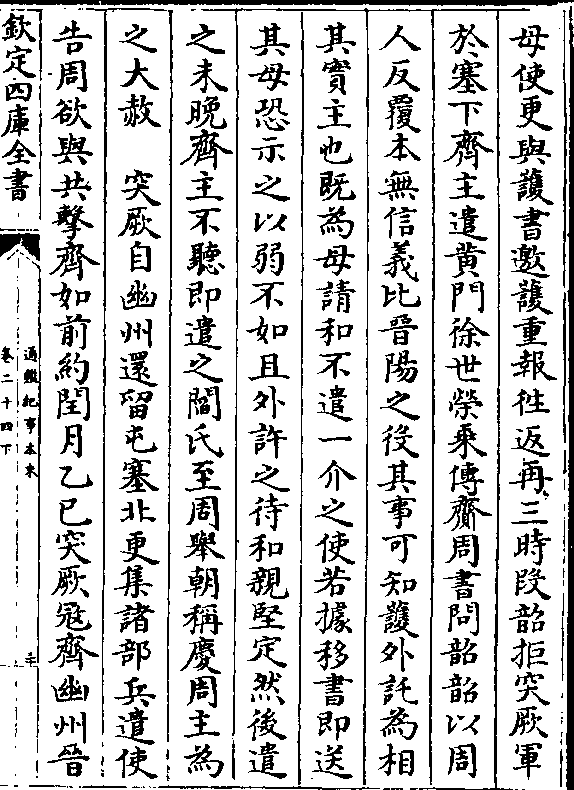 母使更與護書邀護重報徃返再三時段韶拒突厥軍
於塞下齊主遣黄門徐世榮乘傳齎周書問韶韶以周
人反覆本無信義比晉陽之役其事可知護外託為相
其實主也既為母請和不遣一介之使若據移書即送
其母恐示之以弱不如且外許之待和親堅定然後遣
之未晚齊主不聽即遣之閻氏至周舉朝稱慶周主為
之大赦　突厥自幽州還留屯塞北更集諸部兵遣使
告周欲與共擊齊如前約閏月乙巳突厥冦齊幽州晉
欽定四庫全書
通鑑紀事本末
卷二十四下
三十